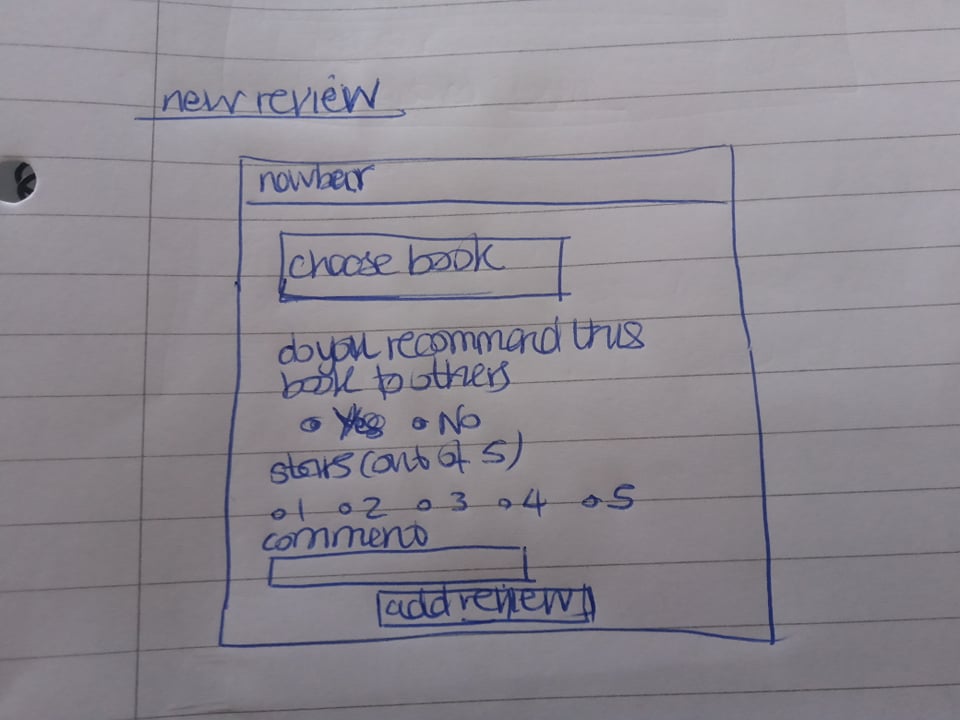 new review
navbar
choose book
do you recommend this
book to others
Yes No
stars (out of 5)
1 2 3 4 5
comment
add review